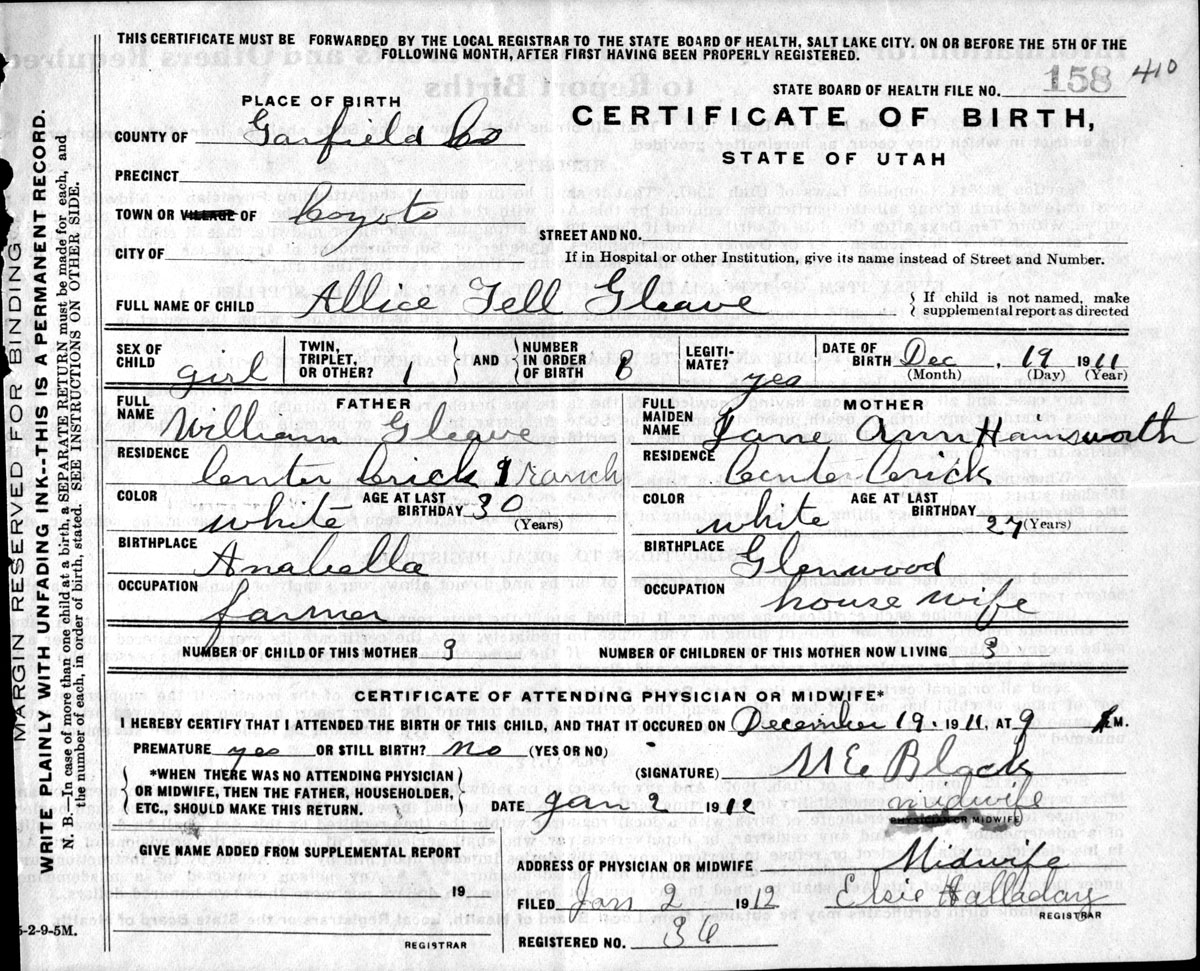 THIS CERTIFICATE MUST BE FORWARDED BY THE LOCAL REGISTRAR TO THE STATE BOARD OF HEALTH, SALT LAKE CITY. ON OR BEFORE THE 5TH OF THE
FOLLOWING MONTH, AFTER FIRST HAVING BEEN PROPERLY REGISTERED.
STATE BOARD OF HEALTH FILE NO. 158 410
PLACE OF BIRTH
CERTIFICATE OF BIRTH,
STATE OF UTAH
COUNTY OF Garfield Co
PRECINCT
TOWN OR VILLAGE OF Coyoto
STREET AND NO.
CITY OF
If in Hospital or other Institution, give its name instead of Street and Number.
FULL NAME OF CHILD Allice Fell Gleave
If child is not named, make
supplemental report as directed
SEX OF CHILD girl
TWIN, TRIPLET, OR OTHER? 1
AND
NUMBER IN ORDER OF BIRTH
LEGITI- MATE? yes
DATE OF BIRTH Dec, 19 1911
(Month) (Day) (Year)
FATHER
FULL NAME William Gleave
RESIDENCE Center Crick ranch
COLOR white
AGE AT LAST BIRTHDAY 30 (Years)
BIRTHPLACE Anabella
OCCUPATION farmer
MOTHER
FULL MAIDEN NAME Jane Ann Hainsworth
RESIDENCE Center Crick
COLOR white
AGE AT LAST BIRTHDAY 27 (Years)
BIRTHPLACE Glenwood
OCCUPATION house wife
NUMBER OF CHILD OF THIS MOTHER 3
NUMBER OF CHILDREN OF THIS MOTHER NOW LIVING 3
CERTIFICATE OF ATTENDING PHYSICIAN OR MIDWIFE*
I HEREBY CERTIFY THAT I ATTENDED THE BIRTH OF THIS CHILD, AND THAT IT OCCURED ON December 19. 1911, AT 9 A M.
PREMATURE yes OR STILL BIRTH? no (YES OR NO)
(SIGNATURE) M E Black
*WHEN THERE WAS NO ATTENDING PHYSICIAN
OR MIDWIFE, THEN THE FATHER, HOUSEHOLDER,
ETC., SHOULD MAKE THIS RETURN.
DATE Jan 2 1912
midwife
PHYSICIAN OR MIDWIFE
GIVE NAME ADDED FROM SUPPLEMENTAL REPORT
19
REGISTRAR
ADDRESS OF PHYSICIAN OR MIDWIFE Midwife
FILED Jan 2 1912 Elsie Halladay
REGISTRAR
REGISTERED NO. 36
5-2-9-5M.
MARGIN RESERVED FOR BINDING
WRITE PLAINLY WITH UNFADING INK---THIS IS A PERMANENT RECORD.
N. B. In case of more than one child at a birth, a SEPARATE RETURN must be made for each, and
the number of each, in order of birth, stated. SEE INSTRUCTIONS ON OTHER SIDE.